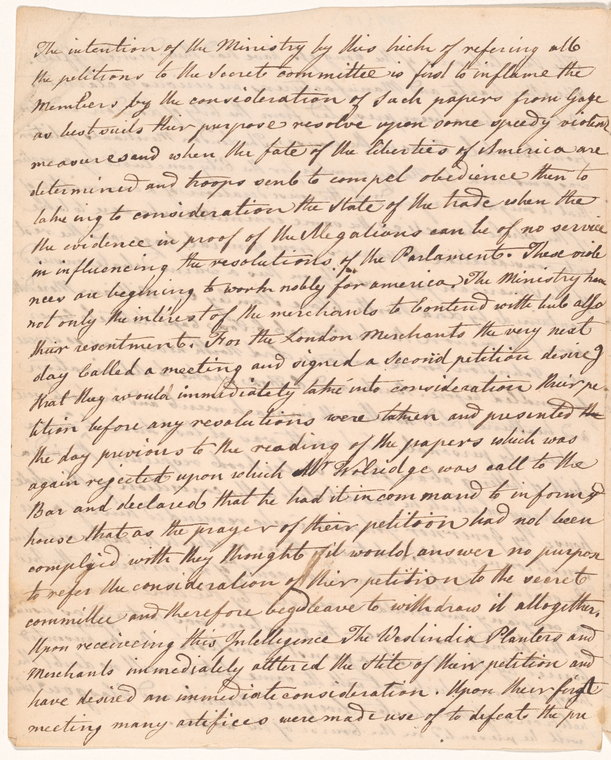 The intention of the Ministry by this trick of refering all
the petitions to the Secret committee is first to inflame the
Members by the consideration of such papers from Gage
as best suits their purpose resolve upon some speedy violent
measures and when the fate of the liberties of America are
determined and troops sent to compel obedience then to
take ing to consideration the State of the trade when the
the evidence in proof of the Allegations can be of no service
in influencing the resolutions of the Parlament. These viole
nces are begining to work nobly for america. The Ministry have
not only the interest of the merchants to Contend with but also
their resentment. For the London Merchants the very next
day Called a meeting and signed a second petition desireg
that they would immediately take into consideration their pe
tition before any resolutions were taken and presented the
the day previous to the reading of the papers which was
again rejected upon which Mr Wolridge was call to the
Bar and declared that he had it in command to inform yd
house that as the prayer of their petition had not been
complyed with they thought it would answer no purpose
to refer the consideration of their petition to the secret
committee and therefore beged leave to withdraw it altogether.
Upon receiveing this Intelligence The Westindia Planters and
Merchants immediately altered the stile of their petition and
have desired an immediate consideration. Upon their first
meeting many artifices were made use of to defeat the pu